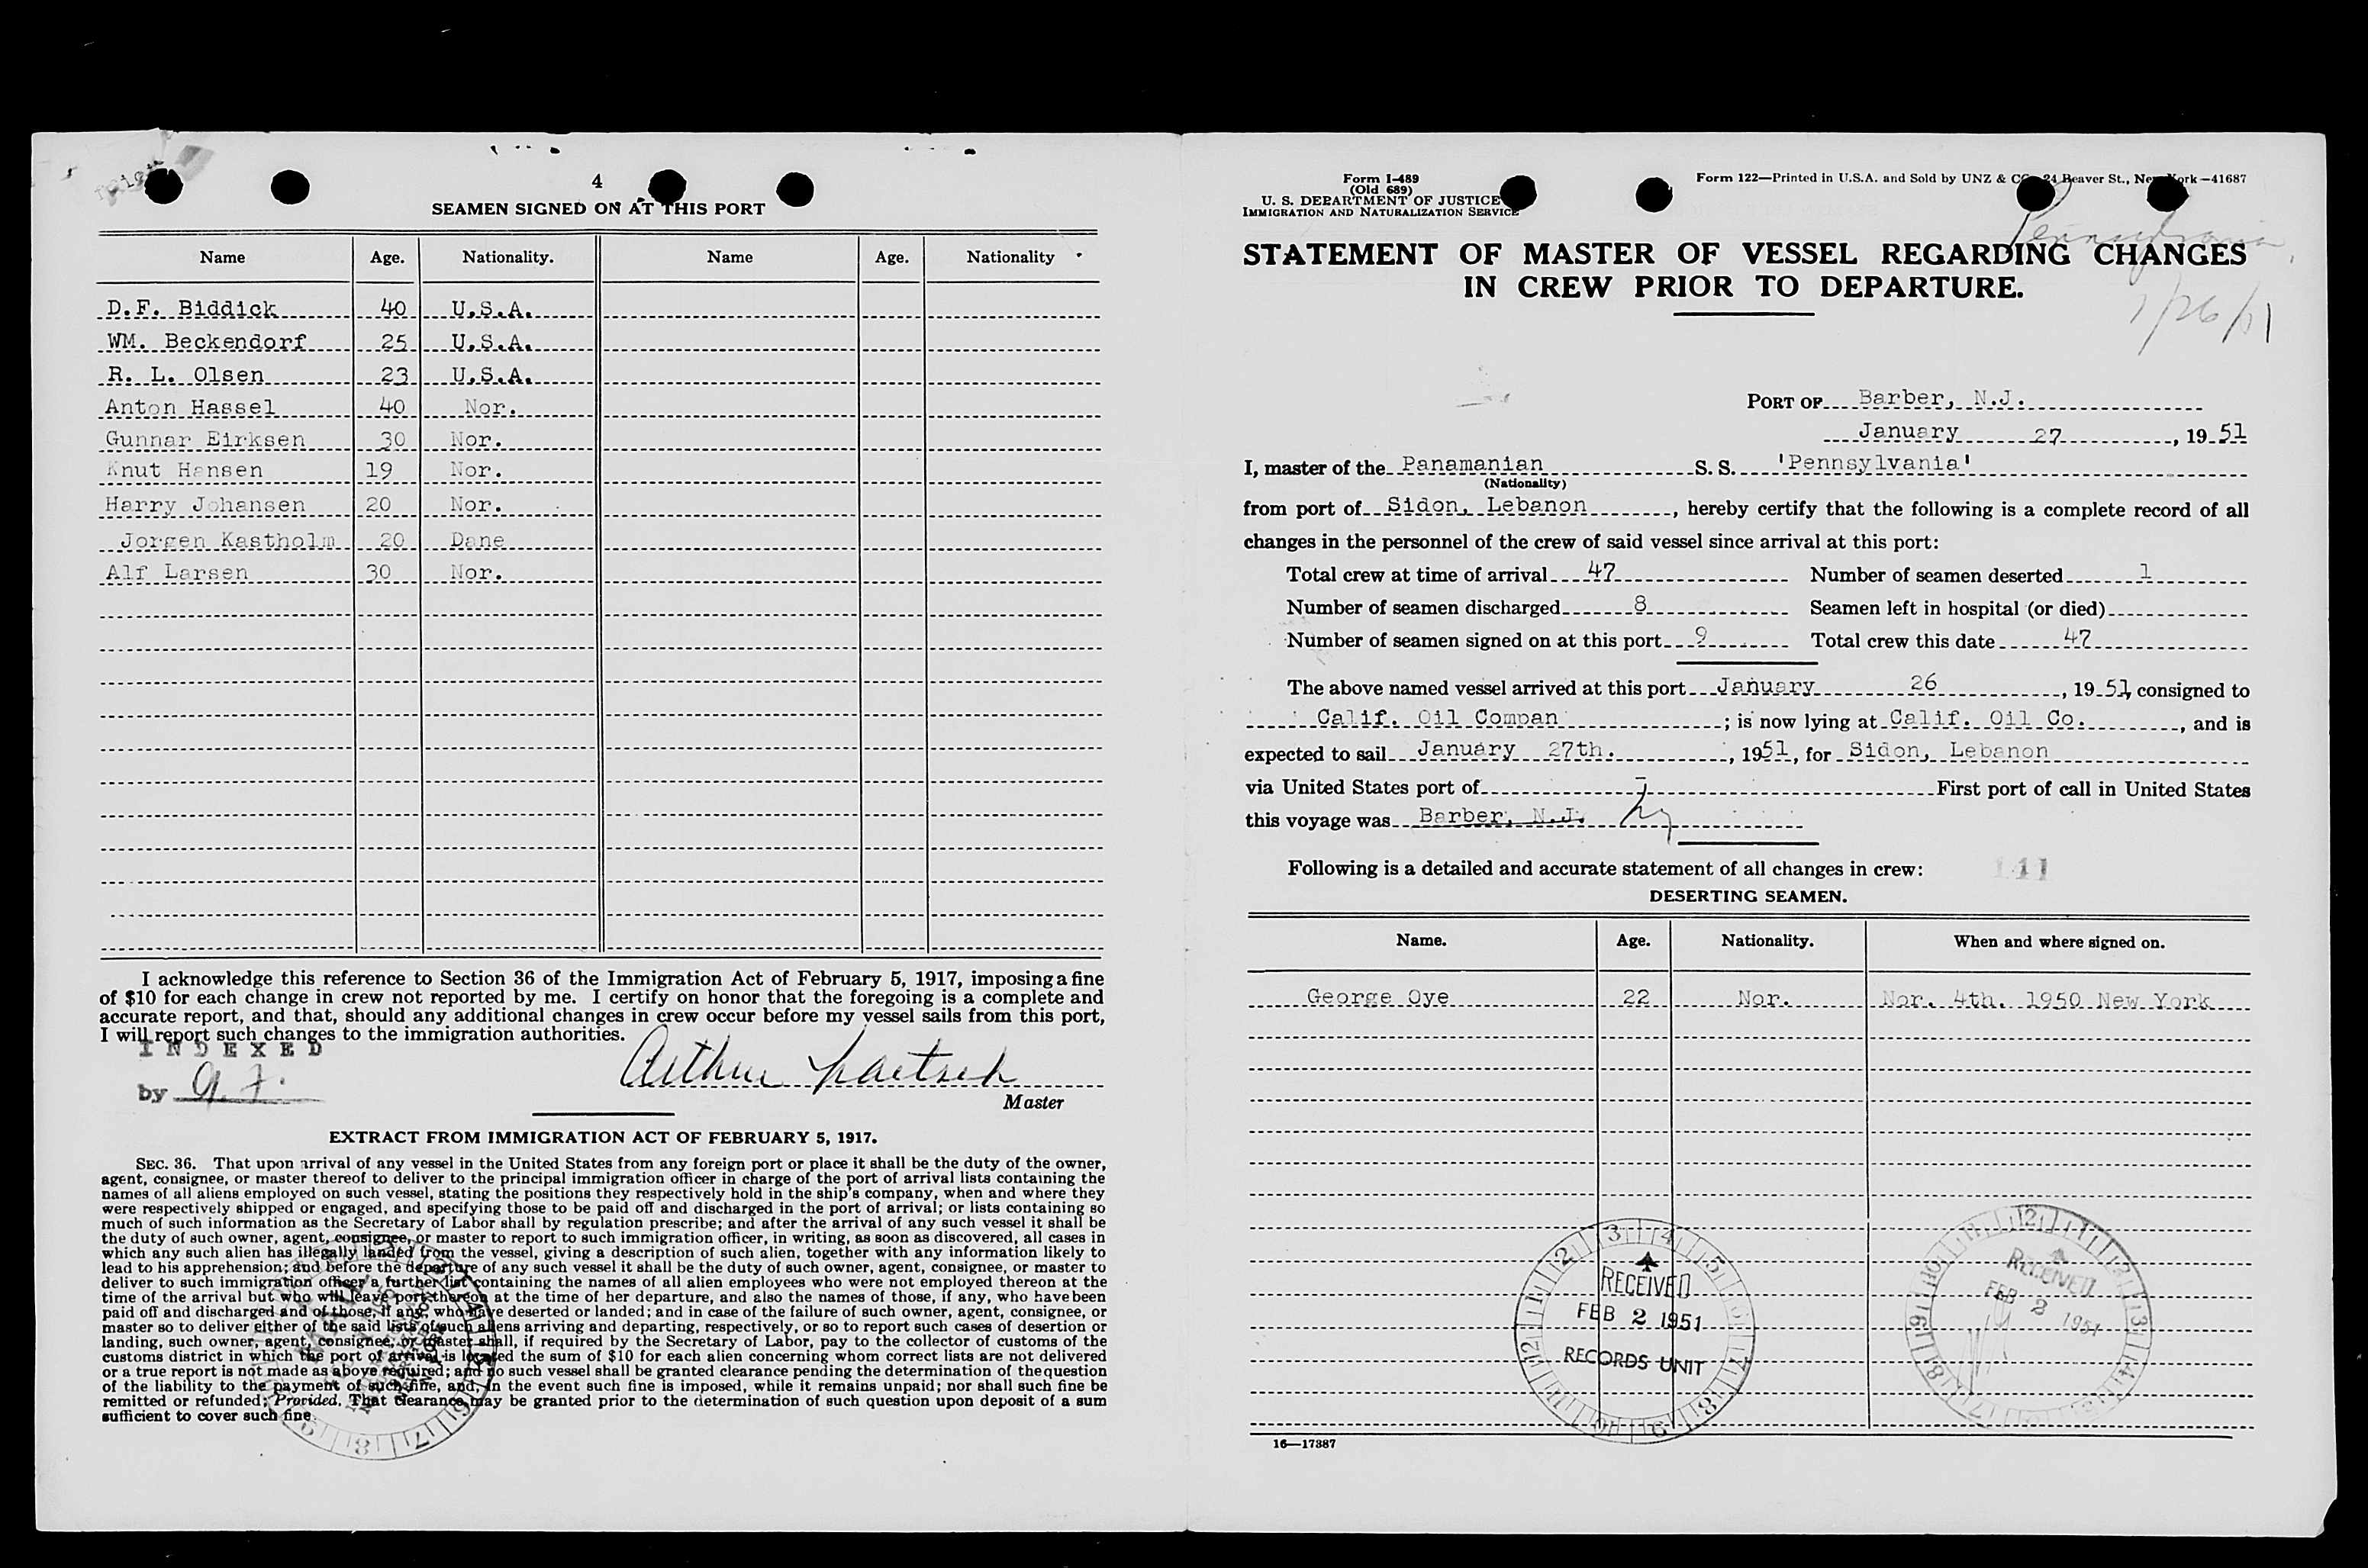 4
SEAMEN SIGNED ON AT THIS PORT
Name Age. Nationality. Name Age. Nationality
D.F. Biddick 40 U.S.A.
WM. Beckendorf 25 U.S.A.
R. L. Olsen 23 U.S.A.
Anton Hassel 40 Nor.
Gunnar Eirksen 30 Nor.
Knut Hansen 19 Nor.
Harry Johansen 20 Nor.
Jorgen Kastholm 20 Dane
Alf Larsen 30 Nor.
I acknowledge this reference to Section 36 of the Immigration Act of February 5, 1917, imposing a fine
of $10 for each change in crew not reported by me. I certify on honor that the foregoing is a complete and
accurate report, and that, should any additional changes in crew occur before my vessel sails from this port,
I will report such changes to the immigration authorities.
INDEXED
by
Arthur
Master
EXTRACT FROM IMMIGRATION ACT OF FEBRUARY 5, 1917.
SEC. 36. That upon arrival of any vessel in the United States from any foreign port or place it shall be the duty of the owner,
agent, consignee, or master thereof to deliver to the principal immigration officer in charge of the port of arrival lists containing the
names of all aliens employed on such vessel, stating the positions they respectively hold in the ship's company, when and where they
were respectively shipped or engaged, and specifying those to be paid off and discharged in the port of arrival; or lists containing so
much of such information as the Secretary of Labor shall by regulation prescribe; and after the arrival of any such vessel it shall be
the duty of such owner, agent, consignee, or master to report to such immigration officer, in writing, as soon as discovered, all cases in
which any such alien has illegally landed from the vessel, giving a description of such alien, together with any information likely to
lead to his apprehension; and before the departure of any such vessel it shall be the duty of such owner, agent, consignee, or master to
deliver to such immigration officer a further list containing the names of all alien employees who were not employed thereon at the
time of the arrival but who will leave port thereon at the time of her departure, and also the names of those, if any, who have been
paid off and discharged and of those, if any, who have deserted or landed; and in case of the failure of such owner, agent, consignee, or
master so to deliver either of the said lists of such aliens arriving and departing, respectively, or so to report such cases of desertion or
landing, such owner, agent, consignee, or master shall, if required by the Secretary of Labor, pay to the collector of customs of the
customs district in which the port of arrival is located the sum of $10 for each alien concerning whom correct lists are not delivered
or a true report is not made as above required; and no such vessel shall be granted clearance pending the determination of the question
of the liability to the payment of such fine, and, in the event such fine is imposed, while it remains unpaid; nor shall such fine be
remitted or refunded; Provided, That clearance may be granted prior to the determination of such question upon deposit of a sum
sufficient to cover such fine.
Form I-489
(Old 689)
U. S. DEPARTMENT OF JUSTICE
IMMIGRATION AND NATURALIZATION SERVICE
Form 122—Printed in U.S.A. and Sold by UNZ & CO., 24 Beaver St., New York—41687
Pennsylvania
STATEMENT OF MASTER OF VESSEL REGARDING CHANGES
IN CREW PRIOR TO DEPARTURE.
1/26/51
PORT OF Barber, N.J.
January 27, 1951
I, master of the Panamanian S. S. 'Pennsylvania'
(Nationality)
from port of Sidon, Lebanon, hereby certify that the following is a complete record of all
changes in the personnel of the crew of said vessel since arrival at this port:
Total crew at time of arrival 47 Number of seamen deserted 1
Number of seamen discharged 8 Seamen left in hospital (or died)
Number of seamen signed on at this port 9 Total crew this date 47
The above named vessel arrived at this port January 26, 1951, consigned to
Calif. Oil Compan; is now lying at Calif. Oil Co., and is
expected to sail January 27th., 1951, for Sidon, Lebanon
via United States port of First port of call in United States
this voyage was Barber, N.J. ny
Following is a detailed and accurate statement of all changes in crew: 141
DESERTING SEAMEN.
Name. Age. Nationality. When and where signed on.
George Oye 22 Nor. Nor. 4th. 1950 New York
RECEIVED
FEB 2 1951
RECORDS UNIT
RECEIVED
FEB 2 1951
16—17387